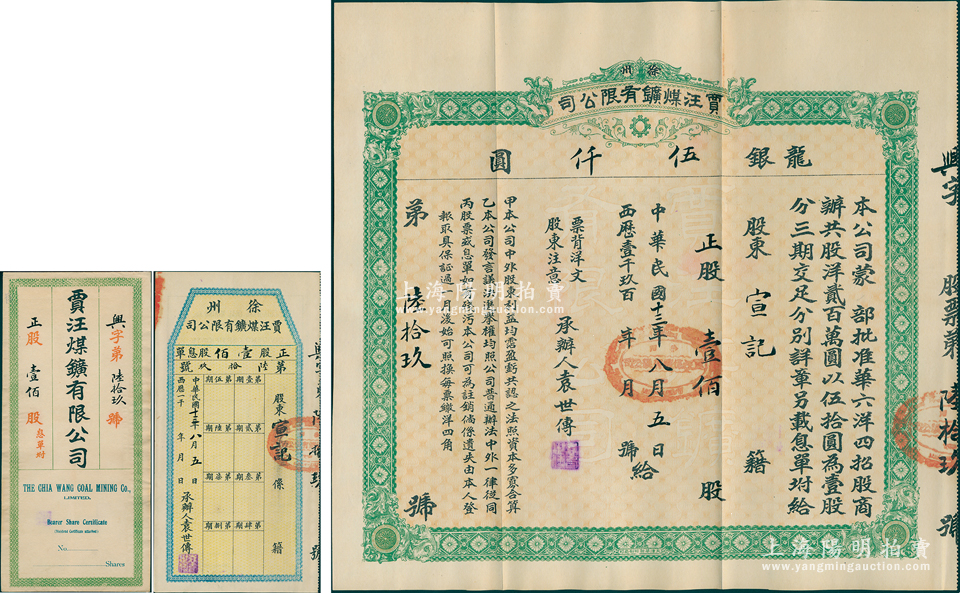 興字第 陸拾玖 號
賈汪煤鑛有限公司
正股 壹佰 股 息單附
THE CHIA WANG COAL MINING Co.,
LIMITED.
Bearer Share Certificate
No.
Shares
徐州
賈汪煤鑛有限公司
正股壹佰股息單
第陸拾玖號
股東 宣記 係 籍
第壹期
第貳期
第叁期
第肆期
第伍期
第陸期
第柒期
第捌期
中華民國十三年八月五日
西歷一千 年 月 日
承辦人袁世傳
徐州
賈汪煤鑛有限公司
龍銀伍仟圓
本公司蒙 部批准華六洋四招股商
辦共股洋貳百萬圓以伍拾圓為壹股
分三期交足分別詳章另載息單坿給
股東 宣記 籍
正股 壹佰 股
中華民國十三年八月五日
西歷壹千玖百 年 月 號給
承辦人袁世傳
票背洋文
股東注意
甲本公司中外股東利益均需盈虧共認之法照資本多寡合算
乙本公司發言議決舉權均照公司普通辦法中外一律從同
丙股票或息單如有殘汚本公司可為註銷倘係遺失由本人登
報取具保証過一月後始可照換每票繳洋四角
第 陸拾玖 號
興字 股票第 陸拾玖 號
上海陽明拍賣
www.yangmingauction.com
上海陽明拍賣
www.yangmingauction.com